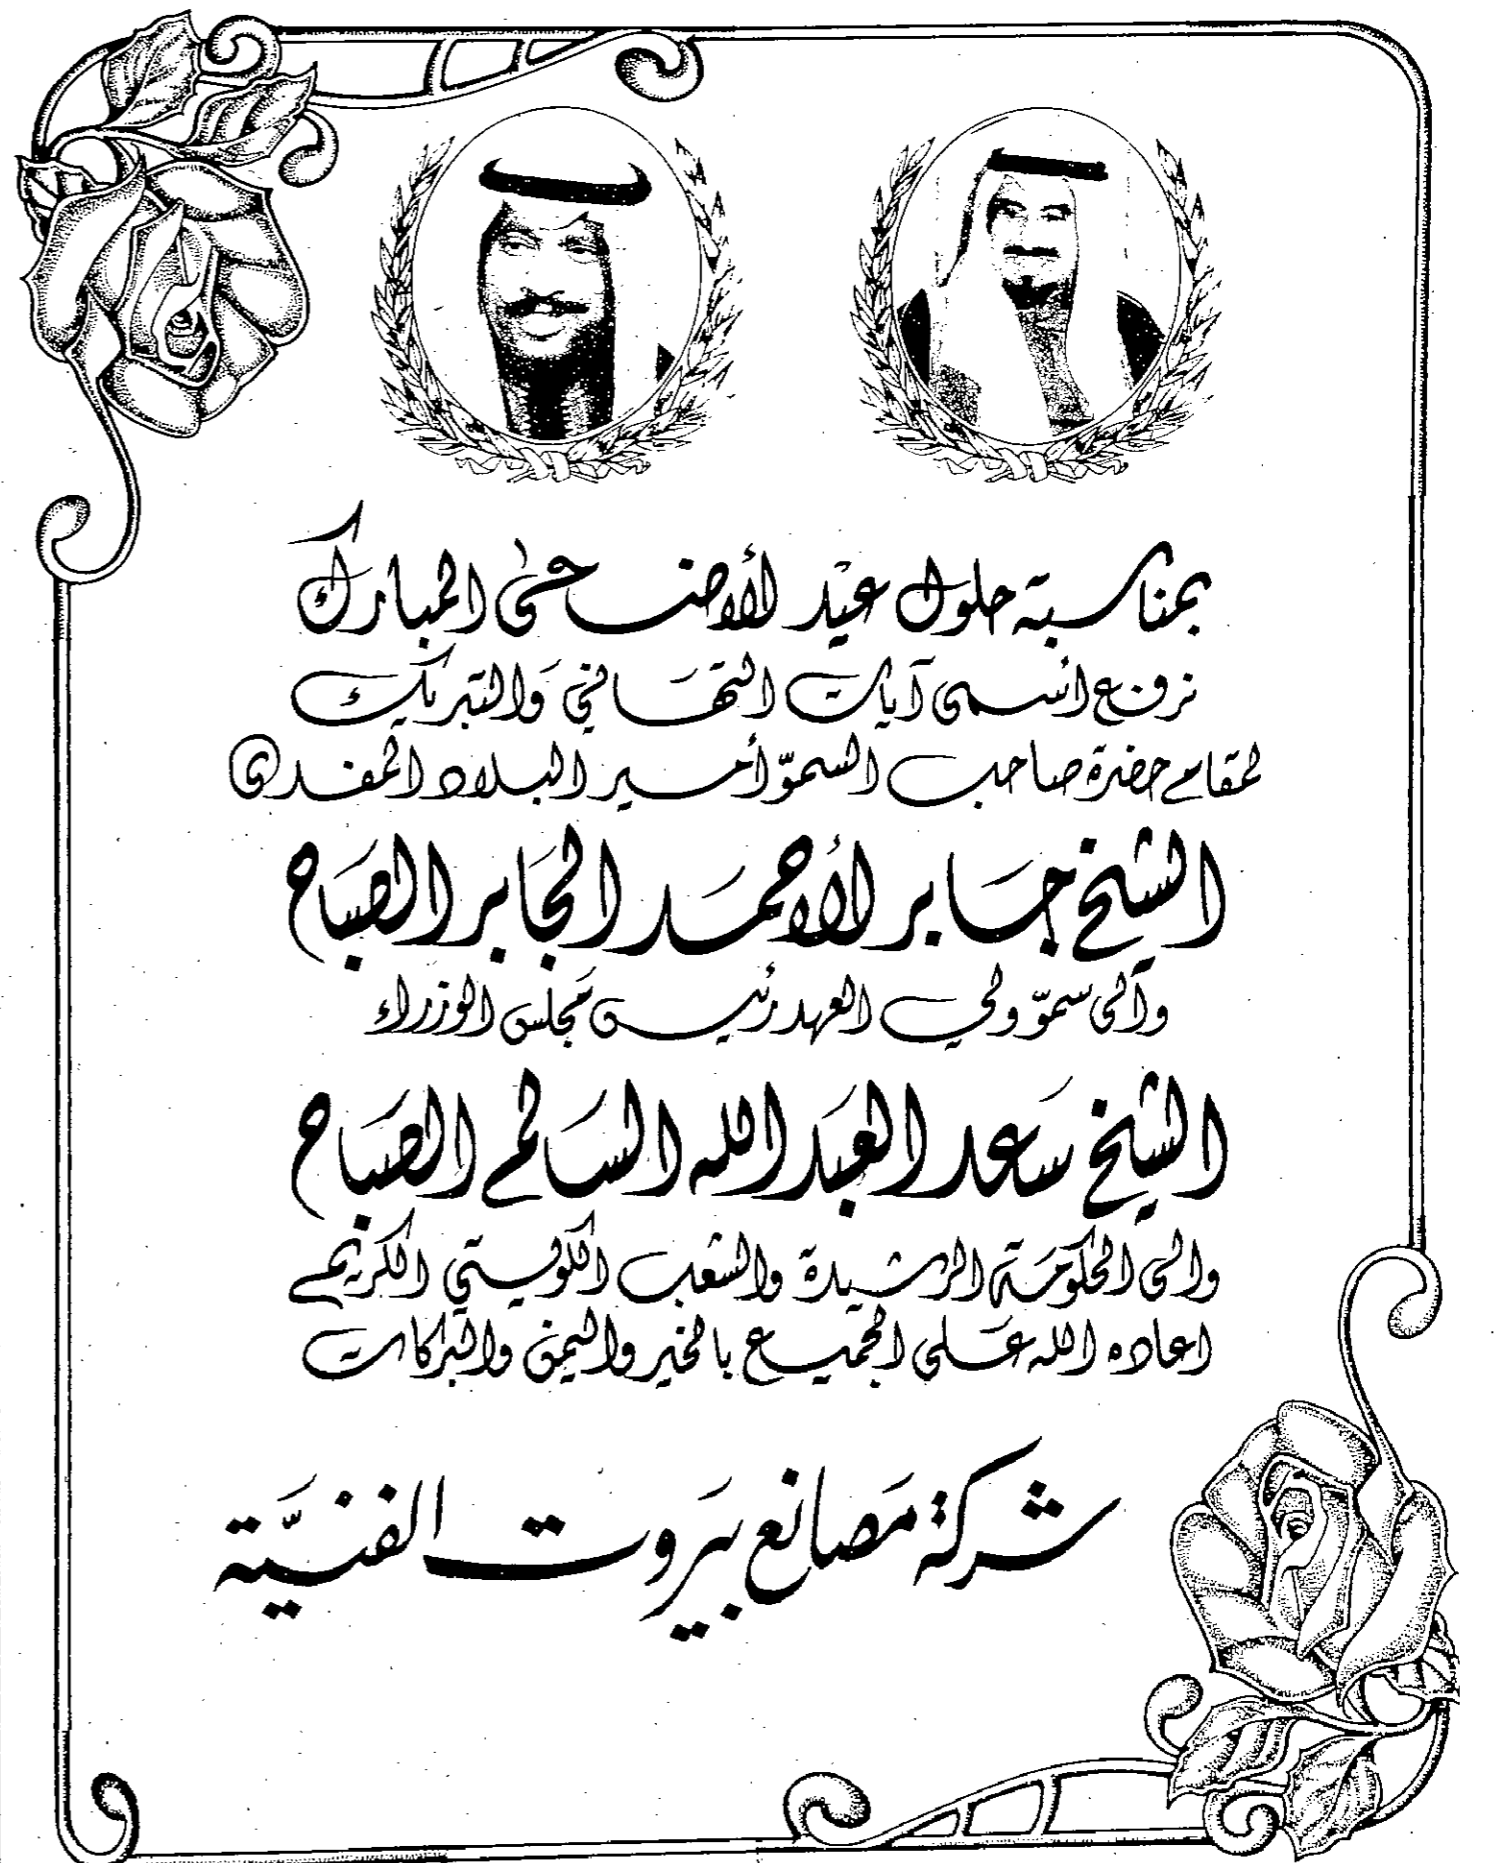 بمناسبة حلول عيد الأضحى المبارك
نرفع أسمى آيات التهاني والتبريك
لمقام حضرة صاحب السموّ أمير البلاد المفدى
الشيخ جابر الأحمد الجابر الصباح
وآلى سموّ ولي العهد رئيس مجلس الوزراء
الشيخ سعد العبد الله السالم الصباح
والى الحكومة الرشيدة والشعب الكويتي الكريم
اعاده الله على الجميع بالخير واليمن والبركات
شركة مصانع بيروت الفنيّة